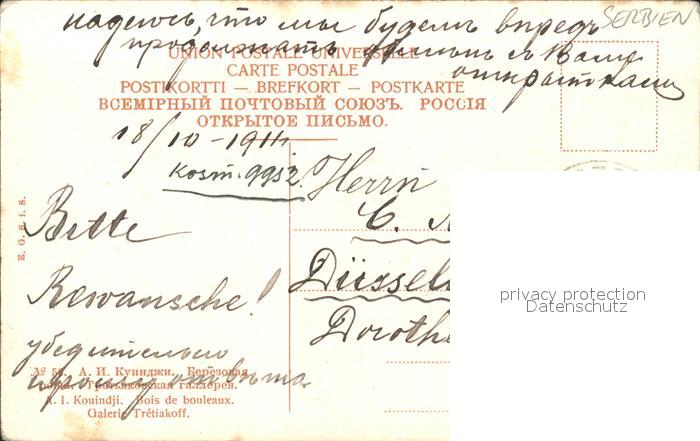 надеюсь, что мы будемъ впредь
SERBIEN
продолжать обмѣнъ съ Вами
открытками
UNION POSTALE UNIVERSELLE
CARTE POSTALE
POSTKORTTI — BREFKORT — POSTKARTE
ВСЕМІРНЫЙ ПОЧТОВЫЙ СОЮЗЪ. РОССІЯ
ОТКРЫТОЕ ПИСЬМО.
18/10-1911
Kosm. 9952
Herrn
C.
Bitte
Düssel
Rewansche!
Doroth
убедительно
прошу отвѣта
E. G. S. i. S.
А. И. Куинджи. Березовая
роща. Третьяковская галлерея.
A. I. Kouindji. Bois de bouleaux.
Galerie Trétiakoff.
privacy protection
Datenschutz